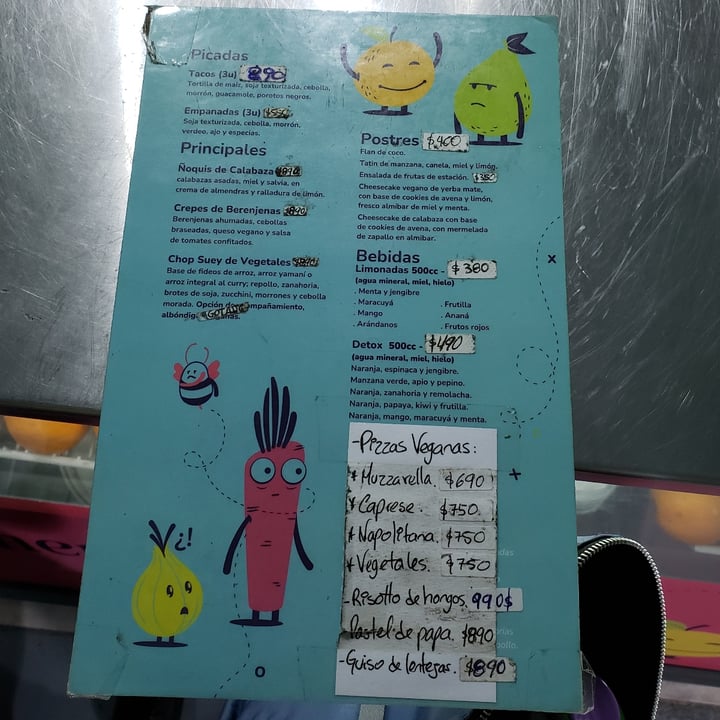 Picadas
Tacos (3u) 890
Tortilla de maíz, soja texturizada, cebolla,
morrón, guacamole, porotos negros.
Empanadas (3u)
Soja texturizada, cebolla, morrón,
verdeo, ajo y especias.
Principales
Ñoquis de Calabaza
calabazas asadas, miel y salvia, en
crema de almendras y ralladura de limón.
Crepes de Berenjenas
Berenjenas ahumadas, cebollas
braseadas, queso vegano y salsa
de tomates confitados.
Chop Suey de Vegetales
Base de fideos de arroz, arroz yamaní o
arroz integral al curry; repollo, zanahoria,
brotes de soja, zucchini, morrones y cebolla
morada. Opción de acompañamiento,
¿!
O
Postres $400
Flan de coco.
Tatin de manzana, canela, miel y limón.
Ensalada de frutas de estación.
Cheesecake vegano de yerba mate,
con base de cookies de avena y limón,
fresco almibar de miel y menta.
Cheesecake de calabaza con base
de cookies de avena, con mermelada
de zapallo en almibar.
Bebidas
Limonadas 500cc - $380
(agua mineral, miel, hielo)
. Menta y jengibre
. Maracuyá . Frutilla
. Mango . Ananá
. Arándanos . Frutos rojos
Detox 500cc - $490
(agua mineral, miel, hielo)
Naranja, espinaca y jengibre.
Manzana verde, apio y pepino.
Naranja, zanahoria y remolacha.
Naranja, papaya, kiwi y frutilla.
Naranja, mango, maracuyá y menta.
-Pizzas Veganas:
* Muzzarella. $690
* Caprese. $750
* Napolitana. $750
* Vegetales. $750
-Risotto de hongos. 990$
Pastel de papa. $890
-Guiso de lentejas. $890